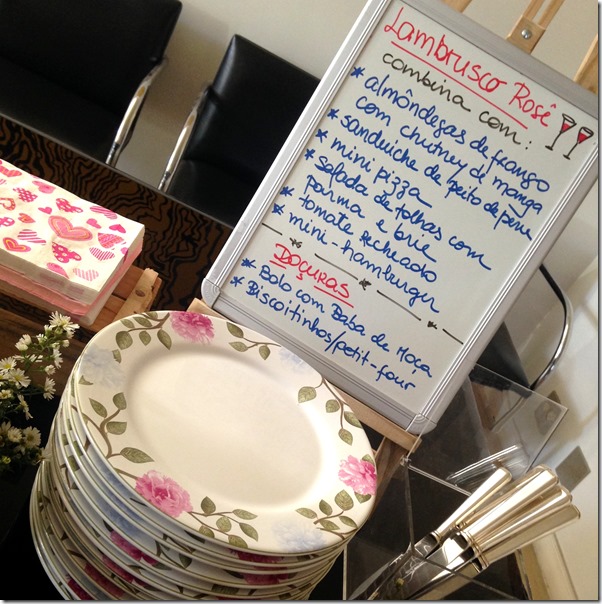 Lambrusco Rosê
combina com:
* almôndegas de frango
com chutney de manga
* sanduiche de peito de peru
* mini pizza
* salada de folhas com
parma e brie
* tomate recheado
* mini-hamburger
DOÇURAS
* Bolo com Baba de Moça
* Biscoitinhos/petit-four